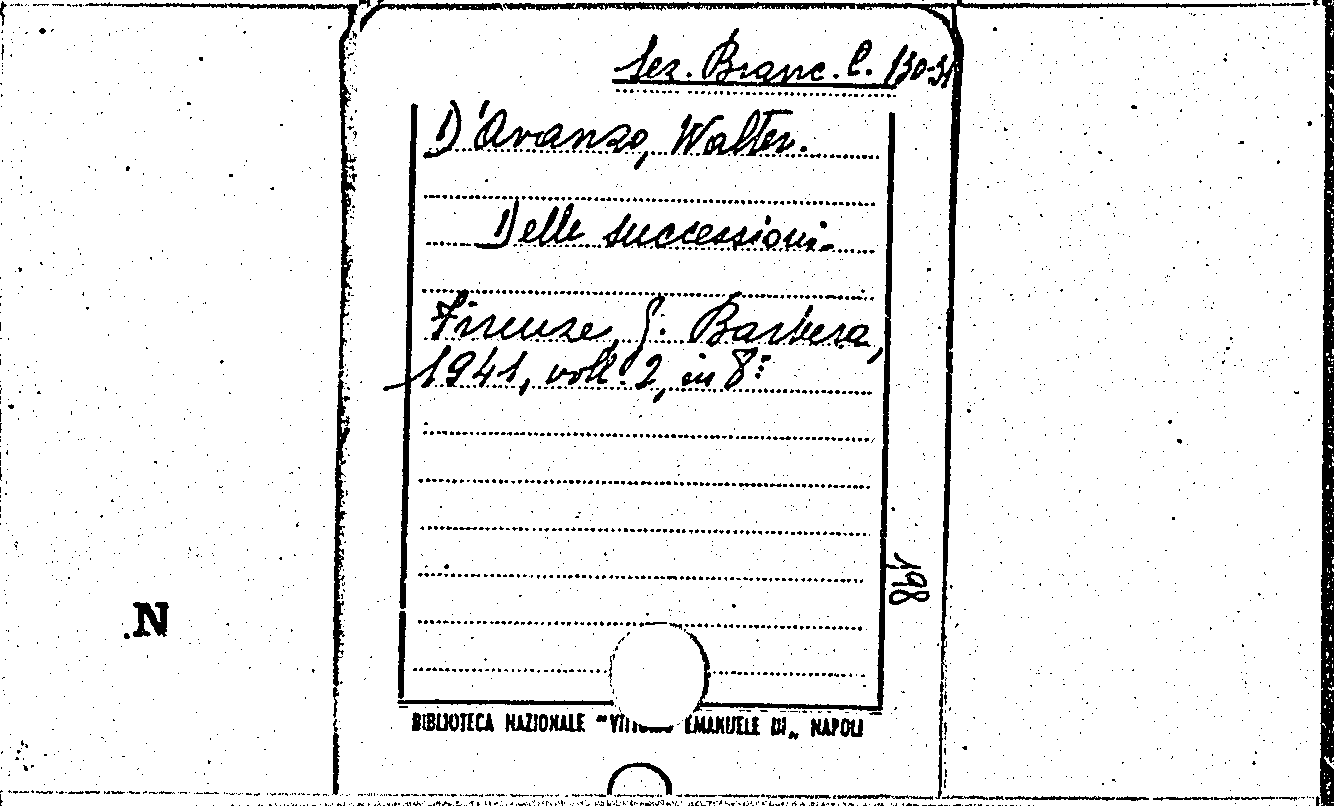 Sez. Branc. C. 130-31
D'Avanzo, Walter.
Delle successioni.
Firenze, G. Barbera,
1941, voll. 2, in 8º.
198
N
BIBLIOTECA NAZIONALE "VITTORIO EMANUELE III„ NAPOLI